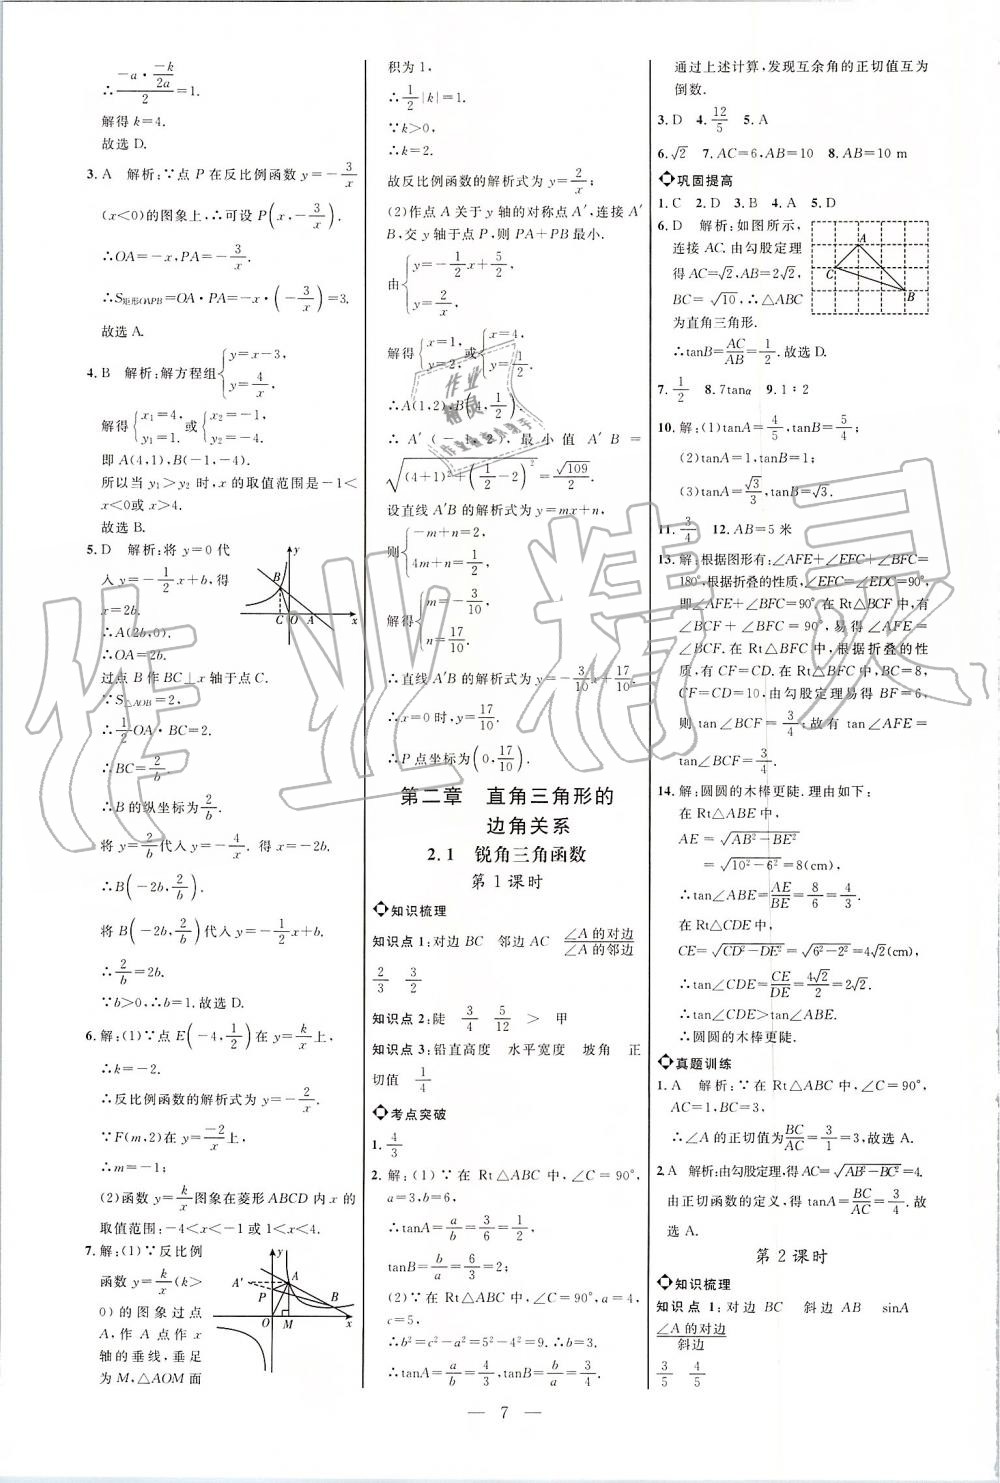 ∴(-a·(-k/2a))/2=1.
解得 k=4.
故选 D.
3. A 解析:∵点 P 在反比例函数 y=-3/x
(x<0)的图象上,∴可设 P(x,-3/x).
∴OA=-x,PA=-3/x.
∴S矩形OAPB=OA·PA=-x·(-3/x)=3.
故选 A.
4. B 解析:解方程组{y=x-3, y=4/x,
解得{x₁=4, y₁=1.或{x₂=-1, y₂=-4.
即 A(4,1),B(-1,-4).
所以当 y₁>y₂ 时,x 的取值范围是-1<
x<0或 x>4.
故选 B.
5. D 解析:将 y=0 代
入 y=-1/2x+b,得
x=2b.
∴A(2b,0).
∴OA=2b.
过点 B 作 BC⊥x 轴于点 C.
∵S△AOB=2,
∴1/2OA·BC=2.
∴BC=2/b.
∴B 的纵坐标为2/b.
将 y=2/b代入 y=-4/x,得 x=-2b.
∴B(-2b,2/b).
将 B(-2b,2/b)代入 y=-1/2x+b.
∴2/b=2b.
∵b>0,∴b=1.故选 D.
6. 解:(1)∵点 E(-4,1/2)在 y=k/x上,
∴k=-2.
∴反比例函数的解析式为 y=-2/x.
∵F(m,2)在 y=-2/x上,
∴m=-1;
(2)函数 y=k/x图象在菱形 ABCD 内 x 的
取值范围:-4<x<-1或 1<x<4.
7. 解:(1)∵反比例
函数 y=k/x(k>
0)的图象过点
A,作 A 点作 x
轴的垂线,垂足
为 M,△AOM 面
积为 1,
∴1/2|k|=1.
∵k>0,
∴k=2.
故反比例函数的解析式为 y=2/x;
(2)作点 A 关于 y 轴的对称点 A′,连接 A′
B,交 y 轴于点 P,则 PA+PB 最小.
由{y=-1/2x+5/2, y=2/x,
解得{x=1, y=2,或{x=4, y=1/2.
∴A(1,2),B(4,1/2).
∴A′(-1,2),最小值 A′B=
√((4+1)²+(1/2-2)²)=√109/2.
设直线 A′B 的解析式为 y=mx+n,
则{-m+n=2, 4m+n=1/2,
解得{m=-3/10, n=17/10.
∴直线 A′B 的解析式为 y=-3/10x+17/10.
∴x=0时,y=17/10.
∴P 点坐标为(0,17/10).
第二章 直角三角形的
边角关系
2.1 锐角三角函数
第 1 课时
知识梳理
知识点 1:对边 BC 邻边 AC ∠A 的对边/∠A 的邻边
2/3 3/2
知识点 2:陡 3/4 5/12 > 甲
知识点 3:铅直高度 水平宽度 坡角 正
切值 1/4
考点突破
1. 4/3
2. 解:(1)∵在 Rt△ABC 中,∠C=90°,
a=3,b=6,
∴tanA=a/b=3/6=1/2,
tanB=b/a=6/3=2;
(2)∵在 Rt△ABC 中,∠C=90°,a=4,
c=5,
∴b²=c²-a²=5²-4²=9.∴b=3.
∴tanA=a/b=4/3,tanB=b/a=3/4.
通过上述计算,发现互余角的正切值互为
倒数.
3. D 4. 12/5 5. A
6. √2 7. AC=6,AB=10 8. AB=10 m
巩固提高
1. C 2. D 3. B 4. A 5. D
6. D 解析:如图所示,
连接 AC.由勾股定理
得 AC=√2,AB=2√2,
BC=√10,∴△ABC
为直角三角形.
∴tanB=AC/AB=1/2.故选 D.
7. 1/2 8. 7tanα 9. 1∶2
10. 解:(1)tanA=4/5,tanB=5/4;
(2)tanA=1,tanB=1;
(3)tanA=√3/3,tanB=√3.
11. 3/4 12. AB=5 米
13. 解:根据图形有:∠AFE+∠EFC+∠BFC=
180°,根据折叠的性质,∠EFC=∠EDC=90°,
即∠AFE+∠BFC=90°.在 Rt△BCF 中,有
∠BCF+∠BFC=90°,易得∠AFE=
∠BCF.在 Rt△BFC 中,根据折叠的性
质,有 CF=CD.在 Rt△BFC 中,BC=8,
CF=CD=10,由勾股定理易得 BF=6,
则 tan∠BCF=3/4;故有 tan∠AFE=
tan∠BCF=3/4.
14. 解:圆圆的木棒更陡.理由如下:
在 Rt△ABE 中,
AE=√(AB²-BE²)
=√(10²-6²)=8(cm).
∴tan∠ABE=AE/BE=8/6=4/3.
在 Rt△CDE 中,
CE=√(CD²-DE²)=√(6²-2²)=4√2(cm)
∴tan∠CDE=CE/DE=4√2/2=2√2.
∴tan∠CDE>tan∠ABE.
∴圆圆的木棒更陡.
真题训练
1. A 解析:∵在 Rt△ABC 中,∠C=90°,
AC=1,BC=3,
∴∠A 的正切值为BC/AC=3/1=3,故选 A.
2. A 解析:由勾股定理,得 AC=√(AB²-BC²)=4.
由正切函数的定义,得 tanA=BC/AC=3/4.故
选 A.
第 2 课时
知识梳理
知识点 1:对边 BC 斜边 AB sinA
∠A 的对边/斜边
3/5 4/5
y
B
C O A x
y
A′ A
P
B
O M x
A
C
B
作业精灵
作业
精灵
— 7 —